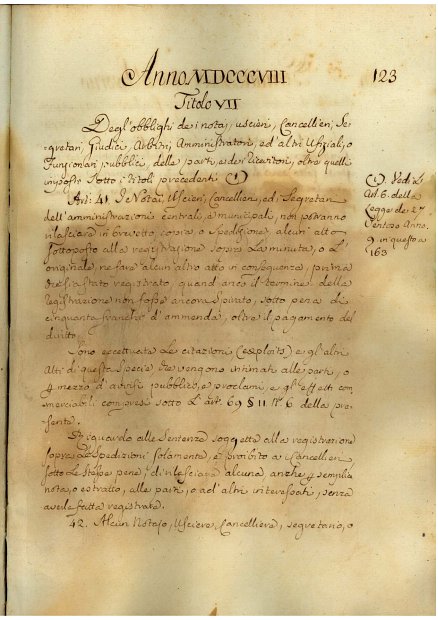 Anno MDCCCVIII 123
Titolo VII
Degl'obblighi dei notai, uscieri, Cancellieri, Se-
gretari, Giudici, Arbitri, Amministratori, ed altri Ufiziali, o
Funzionari pubblici, delle parti, e dei Ricevitori, oltre quelli
imposti sotto i titoli precedenti (1)
(1) Vedi l'
Art. 6. della
Legge de: 27
Ventoso Anno.
9 in questo a
163
Art: 41. I Notai, Uscieri, Cancellieri, ed i Segretari
dell'amministrazioni centrali, e municipali, non potranno
rilasciare in brevetto, copia, o spedizione, alcun'atto
sottoposto alla registrazione sopra la minuta, o l'
originale, ne fare alcun'altro atto in conseguenza, prima
che sia stato registrato, quand'anco il termine della
registrazione non fosse ancora spirato, sotto pena di
cinquanta franchi d'ammenda, oltre il pagamento del
diritto.
Sono eccettuate le citazioni (exploits) e gl'altri
Atti di questa specie che vengono intimati alle parti, o
p mezzo d'affissi pubblici, e proclami, e gl'effetti com-
merciabili compresi sotto l'art. 69 § II nº 6 della pre-
sente.
Riguardo alle Sentenze soggette alla registrazione
sopra le spedizioni solamente, è proibito a Cancellieri
sotto le stesse pene, di rilasciare alcuna, anche p semplice
nota, o estratto, alle parti, o ad altri interessati, senza
averle fatte registrare.
42. Alcun Notajo, Usciere, Cancelliere, segretario, o